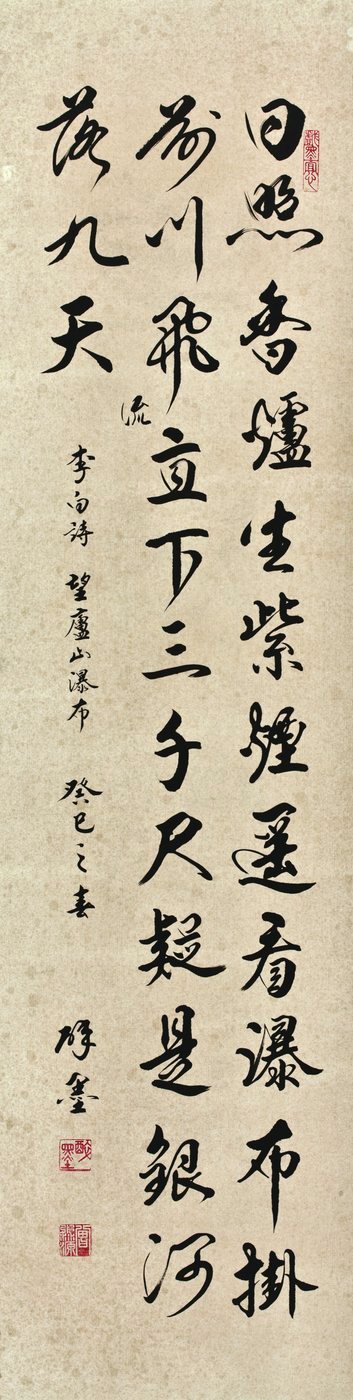 日照香爐生紫煙遙看瀑布掛
前川飛流直下三千尺疑是銀河
落九天
李白詩 望廬山瀑布 癸巳之春 醉墨